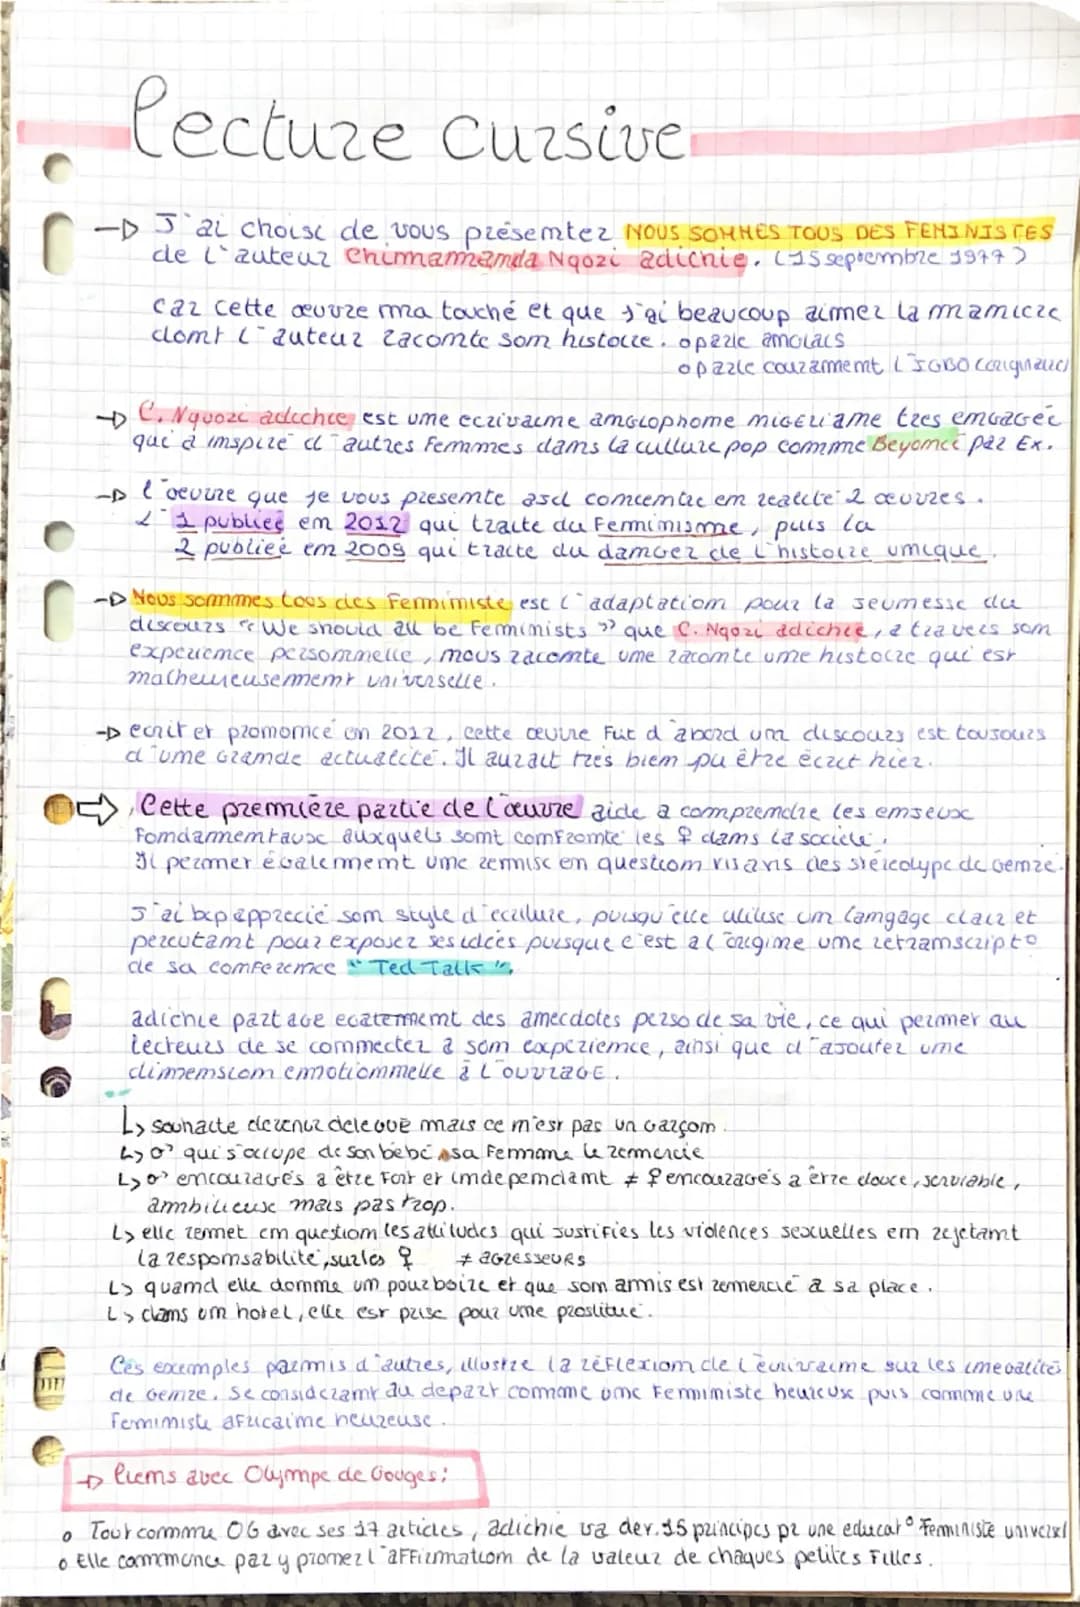 lecture cursive
→ J'ai choisi de vous présenter NOUS SOMMES TOUS DES FEMINISTES
de l'auteur Chimamanda Ngozi adichie. (15 septembre 1977)
car cette œuvre ma touché et que j'ai beaucoup aimer la maniere
dont l'auteur raconte son histoire. o parle anglais
o parle courament l'IGBO (originaire)
→ C. Nguozi adichie est une ecrivaine anglophone nigeriane tres engagée
qui a inspiré d'autres femmes dans la culture pop comme Beyoncé par Ex.
→ l'oeuvre que je vous presente asd concentre en realité 2 œuvres.
L'1 publiée en 2012 qui traite du Feminisme, puis la
2 publiée en 2009 qui traite du danger de l'histoire unique.
→ Nous sommes tous des Feministe est l'adaptation pour la jeunesse du
discours "We should all be Feminists" que C. Ngozi adichie, a travers son
experience personnelle, nous raconte une raconte une histoire qui est
malheureusement universelle.
→ ecrit et prononcé en 2012, cette œuvre Fut d'abord un discours est toujours
d'une grande actualité. Il aurait tres bien pu être écrit hier.
⇒ Cette première partie de l'œuvre aide a comprendre les enjeux
Fondamentaux auxquels sont confronté les ♀ dans la société.
Il permet également une remise en question vis avis des stéréotype de genre.
J'ai bcp apprecié son style d'ecriture, puisqu'elle utilise un langage clair et
percutant pour exposer ses idées puisque c'est a l'origine une retranscript°
de sa conference "Ted Talk".
adichie partage egalement des anecdotes perso de sa vie, ce qui permet au
lecteurs de se connecter a son experience, ainsi que d'ajouter une
dimension emotionnelle à l'ouvrage.
↳ souhaite devenir delegué mais ce n'est pas un garçon.
↳ ♂ qui s'occupe de son bébé sa femme le remercie
↳ ♂ encouragés a être Fort et independant ≠ ♀ encouragés a être douce, serviable,
ambitieuse mais pas trop.
↳ elle remet en question les attitudes qui justifies les violences sexuelles en rejetant
la responsabilité, sur les ♀ ≠ agresseurs
↳ quand elle donne un pourboire et que son amis est remercié a sa place.
↳ dans un hotel, elle est prise pour une prostitué.
Ces exemples parmis d'autres, illustre la réflexion de l'écrivaine sur les inegalités
de genre. Se considerant au depart comme une Feministe heureuse puis comme une
Feministe africaine heureuse.
→ liens avec Olympe de Gouges:
o Tout comme OG avec ses 17 articles, adichie va dev. 15 principes pr une educat° Feministe universel
o Elle commence par y promer l'affirmation de la valeur de chaques petites Filles.